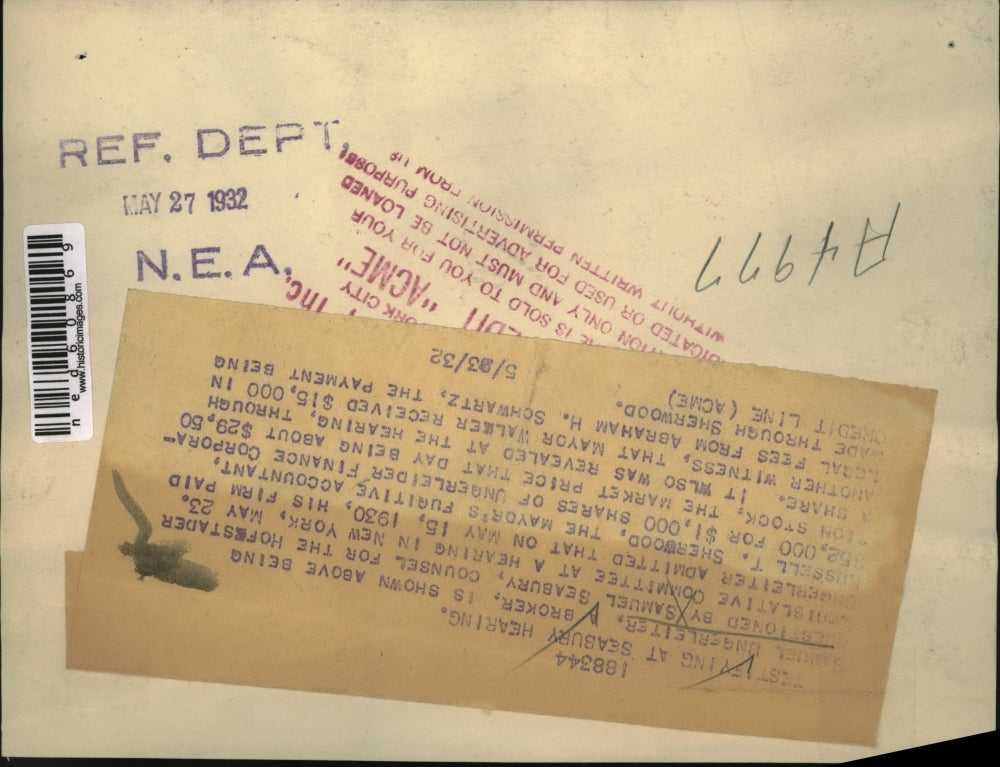 REF. DEPT.
MAY 27 1932
N.E.A.
A4977
ned60869
www.historicimages.com
INC.
ORK CITY
EDIT "ACME"
E IS SOLD TO YOU FOR YOUR
TION ONLY AND MUST NOT BE LOANED
DICATED OR USED FOR ADVERTISING PURPOSES
WITHOUT WRITTEN PERMISSION FROM US
188344
TESTIFYING AT SEABURY HEARING.
SAMUEL UNGERLEITER, A BROKER, IS SHOWN ABOVE BEING
QUESTIONED BY SAMUEL SEABURY, COUNSEL FOR THE HOFSTADER
LEGISLATIVE COMMITTEE AT A HEARING IN NEW YORK, MAY 23.
UNGERLEITER ADMITTED THAT ON MAY 15, 1930, HIS FIRM PAID
RUSSELL T. SHERWOOD, THE MAYOR'S FUGITIVE ACCOUNTANT,
$52,000 FOR $1,000 SHARES OF UNGERLEIDER FINANCE CORPORA-
TION STOCK, THE MARKET PRICE THAT DAY BEING ABOUT $29,50
A SHARE. IT ALSO WAS REVEALED AT THE HEARING, THROUGH
ANOTHER WITNESS, THAT MAYOR WALKER RECEIVED $15,000 IN
LEGAL FEES FROM ABRAHAM H. SCHWARTZ, THE PAYMENT BEING
MADE THROUGH SHERWOOD.
CREDIT LINE (ACME) 5/23/32